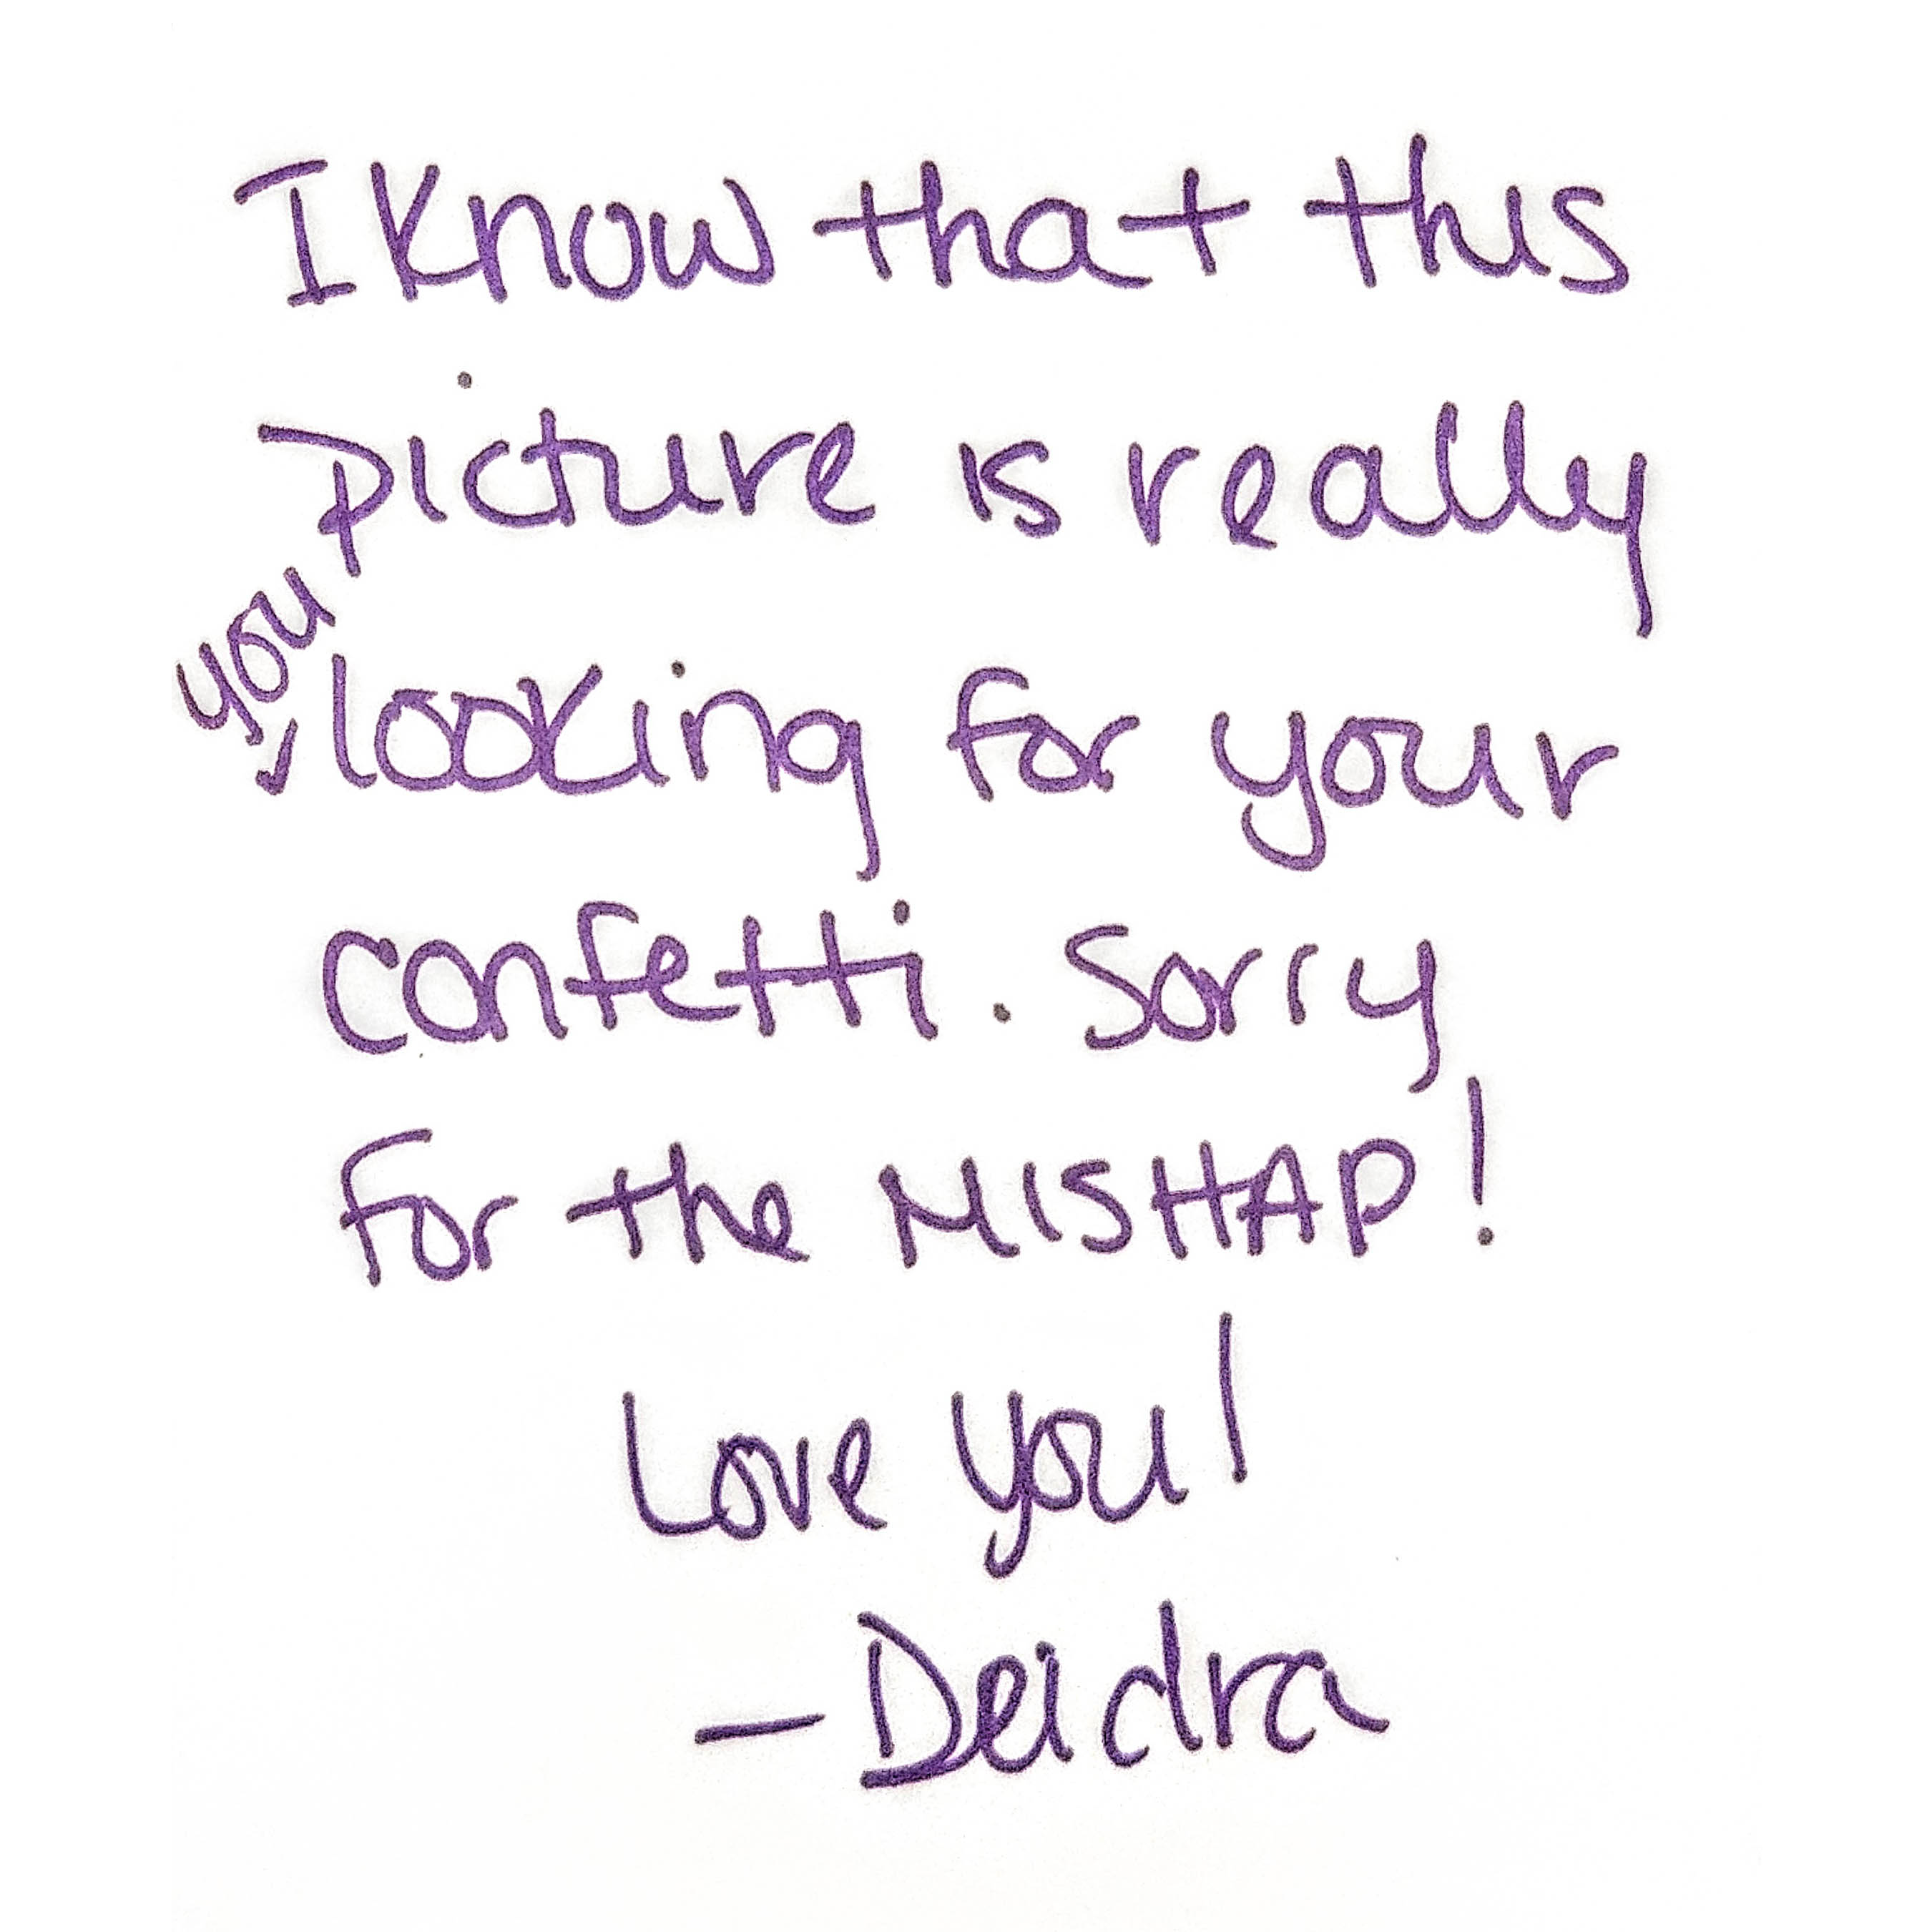 I know that this
picture is really
you looking for your
confetti. Sorry
for the MISHAP!
Love you!
- Deidra